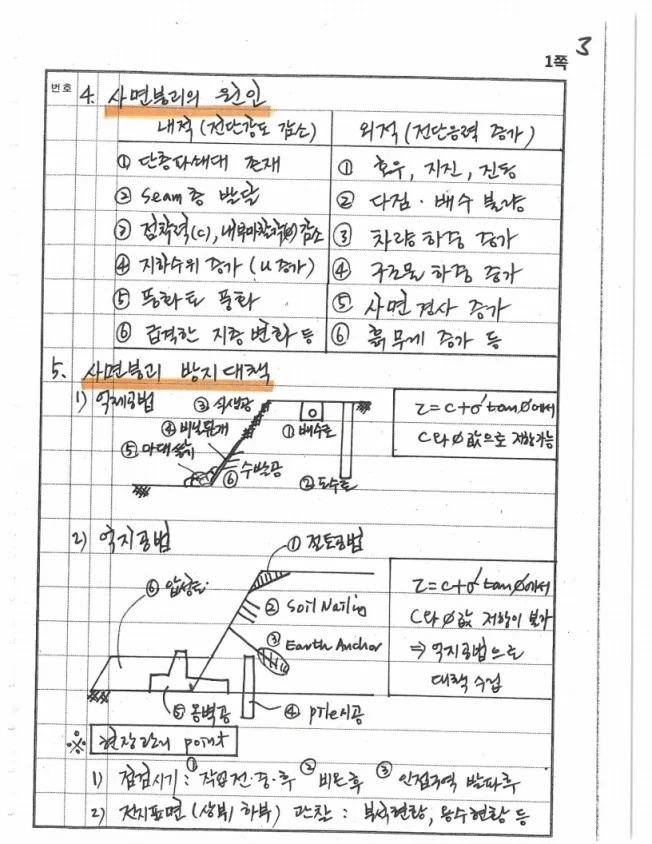 3
1쪽
번호
4. 사면붕괴의 원인
내적 (전단강도 감소) 외적 (전단응력 증가)
① 단층파쇄대 존재 ① 호우, 지진, 진동
② Seam층 발달 ② 다짐·배수 불량
③ 점착력(c), 내부마찰각(ø) 감소 ③ 차량하중 증가
④ 지하수위 증가 (u 증가) ④ 구조물 하중 증가
⑤ 풍화토 풍화 ⑤ 사면경사 증가
⑥ 급격한 지층변화 등 ⑥ 흙무게 증가 등
5. 사면붕괴 방지대책
1) 억제공법
③ 식생공
④ 비닐덮개
⑤ 마대쌓기
⑥ 수발공
① 배수로
② 도수로
τ=c+σ'tanø에서
c와 ø값으로 저항가능
2) 억지공법
① 절토공법
② Soil Nailing
③ Earth Anchor
④ pile시공
⑤ 옹벽공
⑥ 압성토
τ=c+σ'tanø에서
c와 ø값 저항이 불가
⇒ 억지공법으로
대책 수립
※ 현장관리 point
1) 점검시기 : ① 작업 전·중·후 ② 비온후 ③ 인접지역 발파후
2) 전지표면 (상부, 하부) 관찰 : 부석현황, 용수현황 등